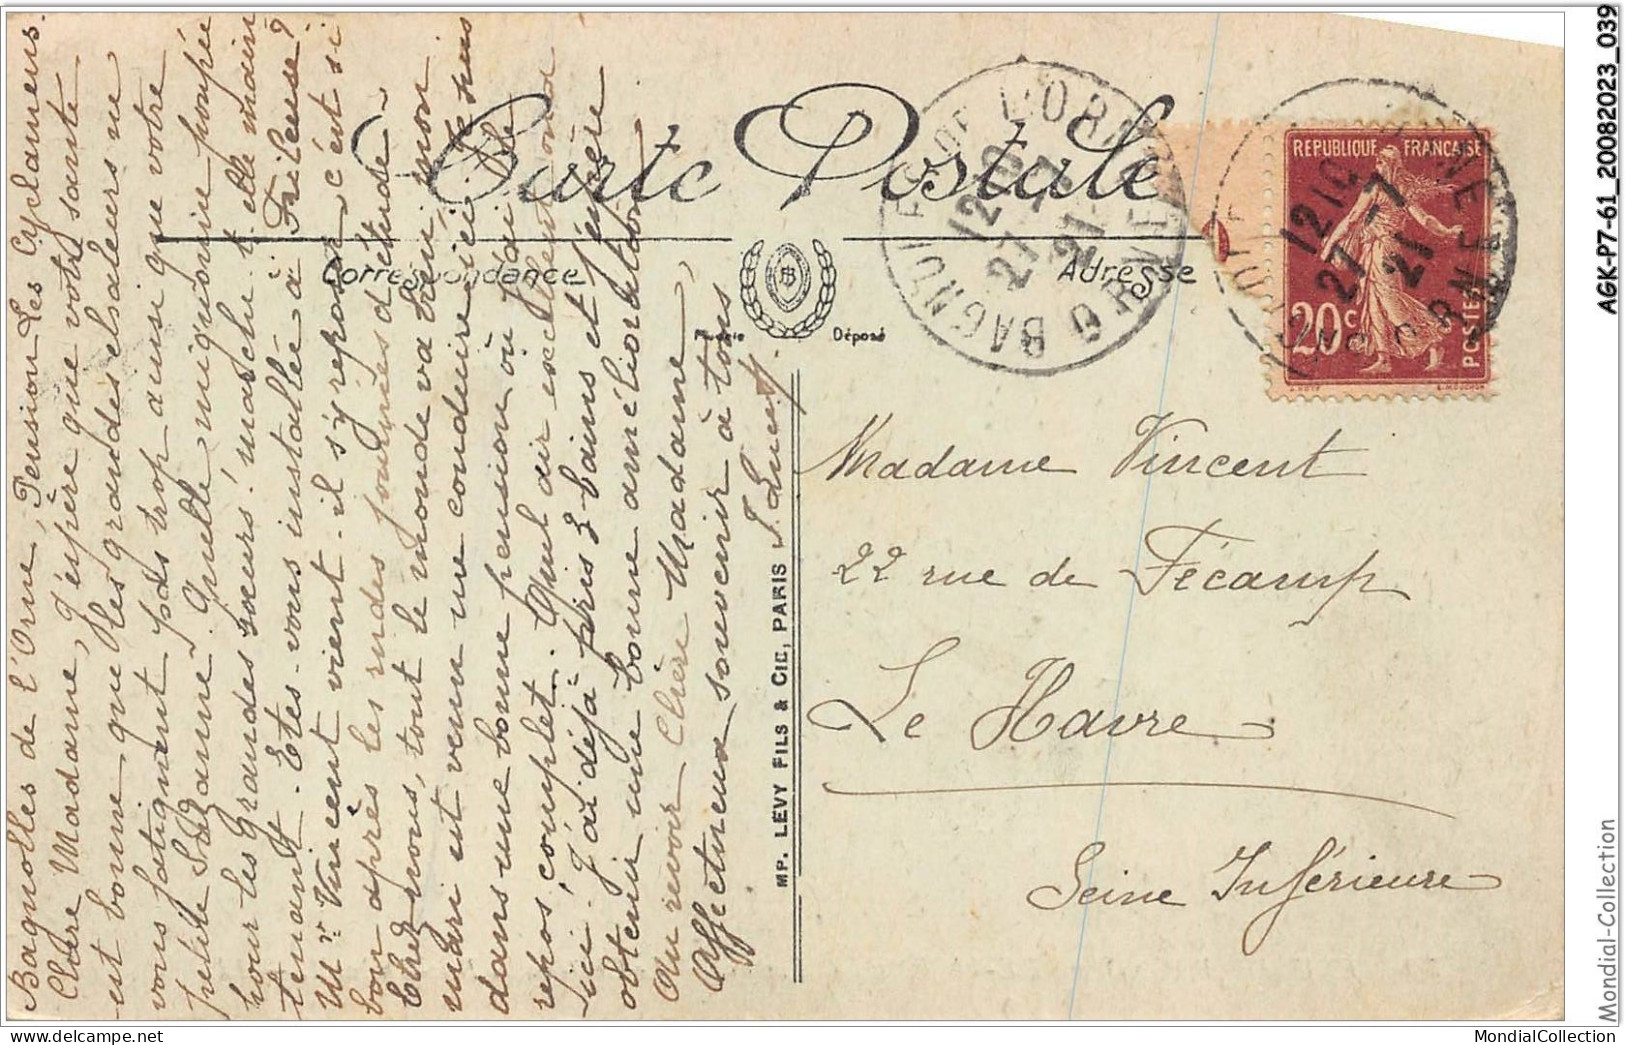 Carte Postale
Correspondance
Adresse
Déposé
BAGNOLES DE L'ORNE
ORNE
12 10
27 - 7
21
REPUBLIQUE FRANÇAISE
20c
POSTES
Madame Vincent
22 rue de Fécamp
Le Havre
Seine Inférieure
Bagnolles de l'Orne, Pension Les Caplaneurs.
Chère Madame, J'espère que votre santé
est bonne que les grandes chaleurs ne
vous fatiguent pas trop ainsi que votre
petite Suzanne. Quelle mignonne poupée
pour les grandes sœurs! marche t-elle main
tenant. Etes-vous installée à Frileuse?
Mr Vincent vient-il s'y reposer c'est si
bon après les rudes journées d'étude.
Chez nous, tout le monde va bien, mon
mari est venu me conduire ici
dans une bonne pension où j'ai le
repos complet. Quel air excellent on a
ici! J'ai déjà pris 3 bains et j'espère
obtenir une bonne amélioration.
Au revoir Chère Madame,
Affectueux souvenir à tous
MP. LEVY FILS & CIE, PARIS
AGK-P7-61_20082023_039
Mondial-Collection
MondialCollection